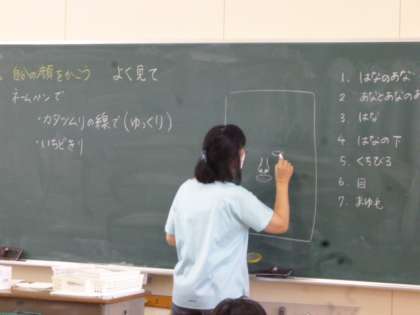 自分の顔をかこう よく見て
ネームペンで
・カタツムリの線で(ゆっくり)
・いちどきり
1. はなのあな
2. あなとあなのあ
3. はな
4. はなの下
5. くちびる
6. 目
7. まゆも